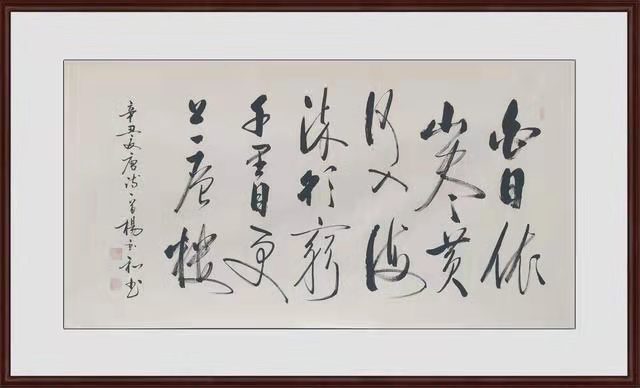 白日依
山尽黄
河入海
流欲窮
千里目更
上一层楼
辛丑夏唐诗一首楊玉和书